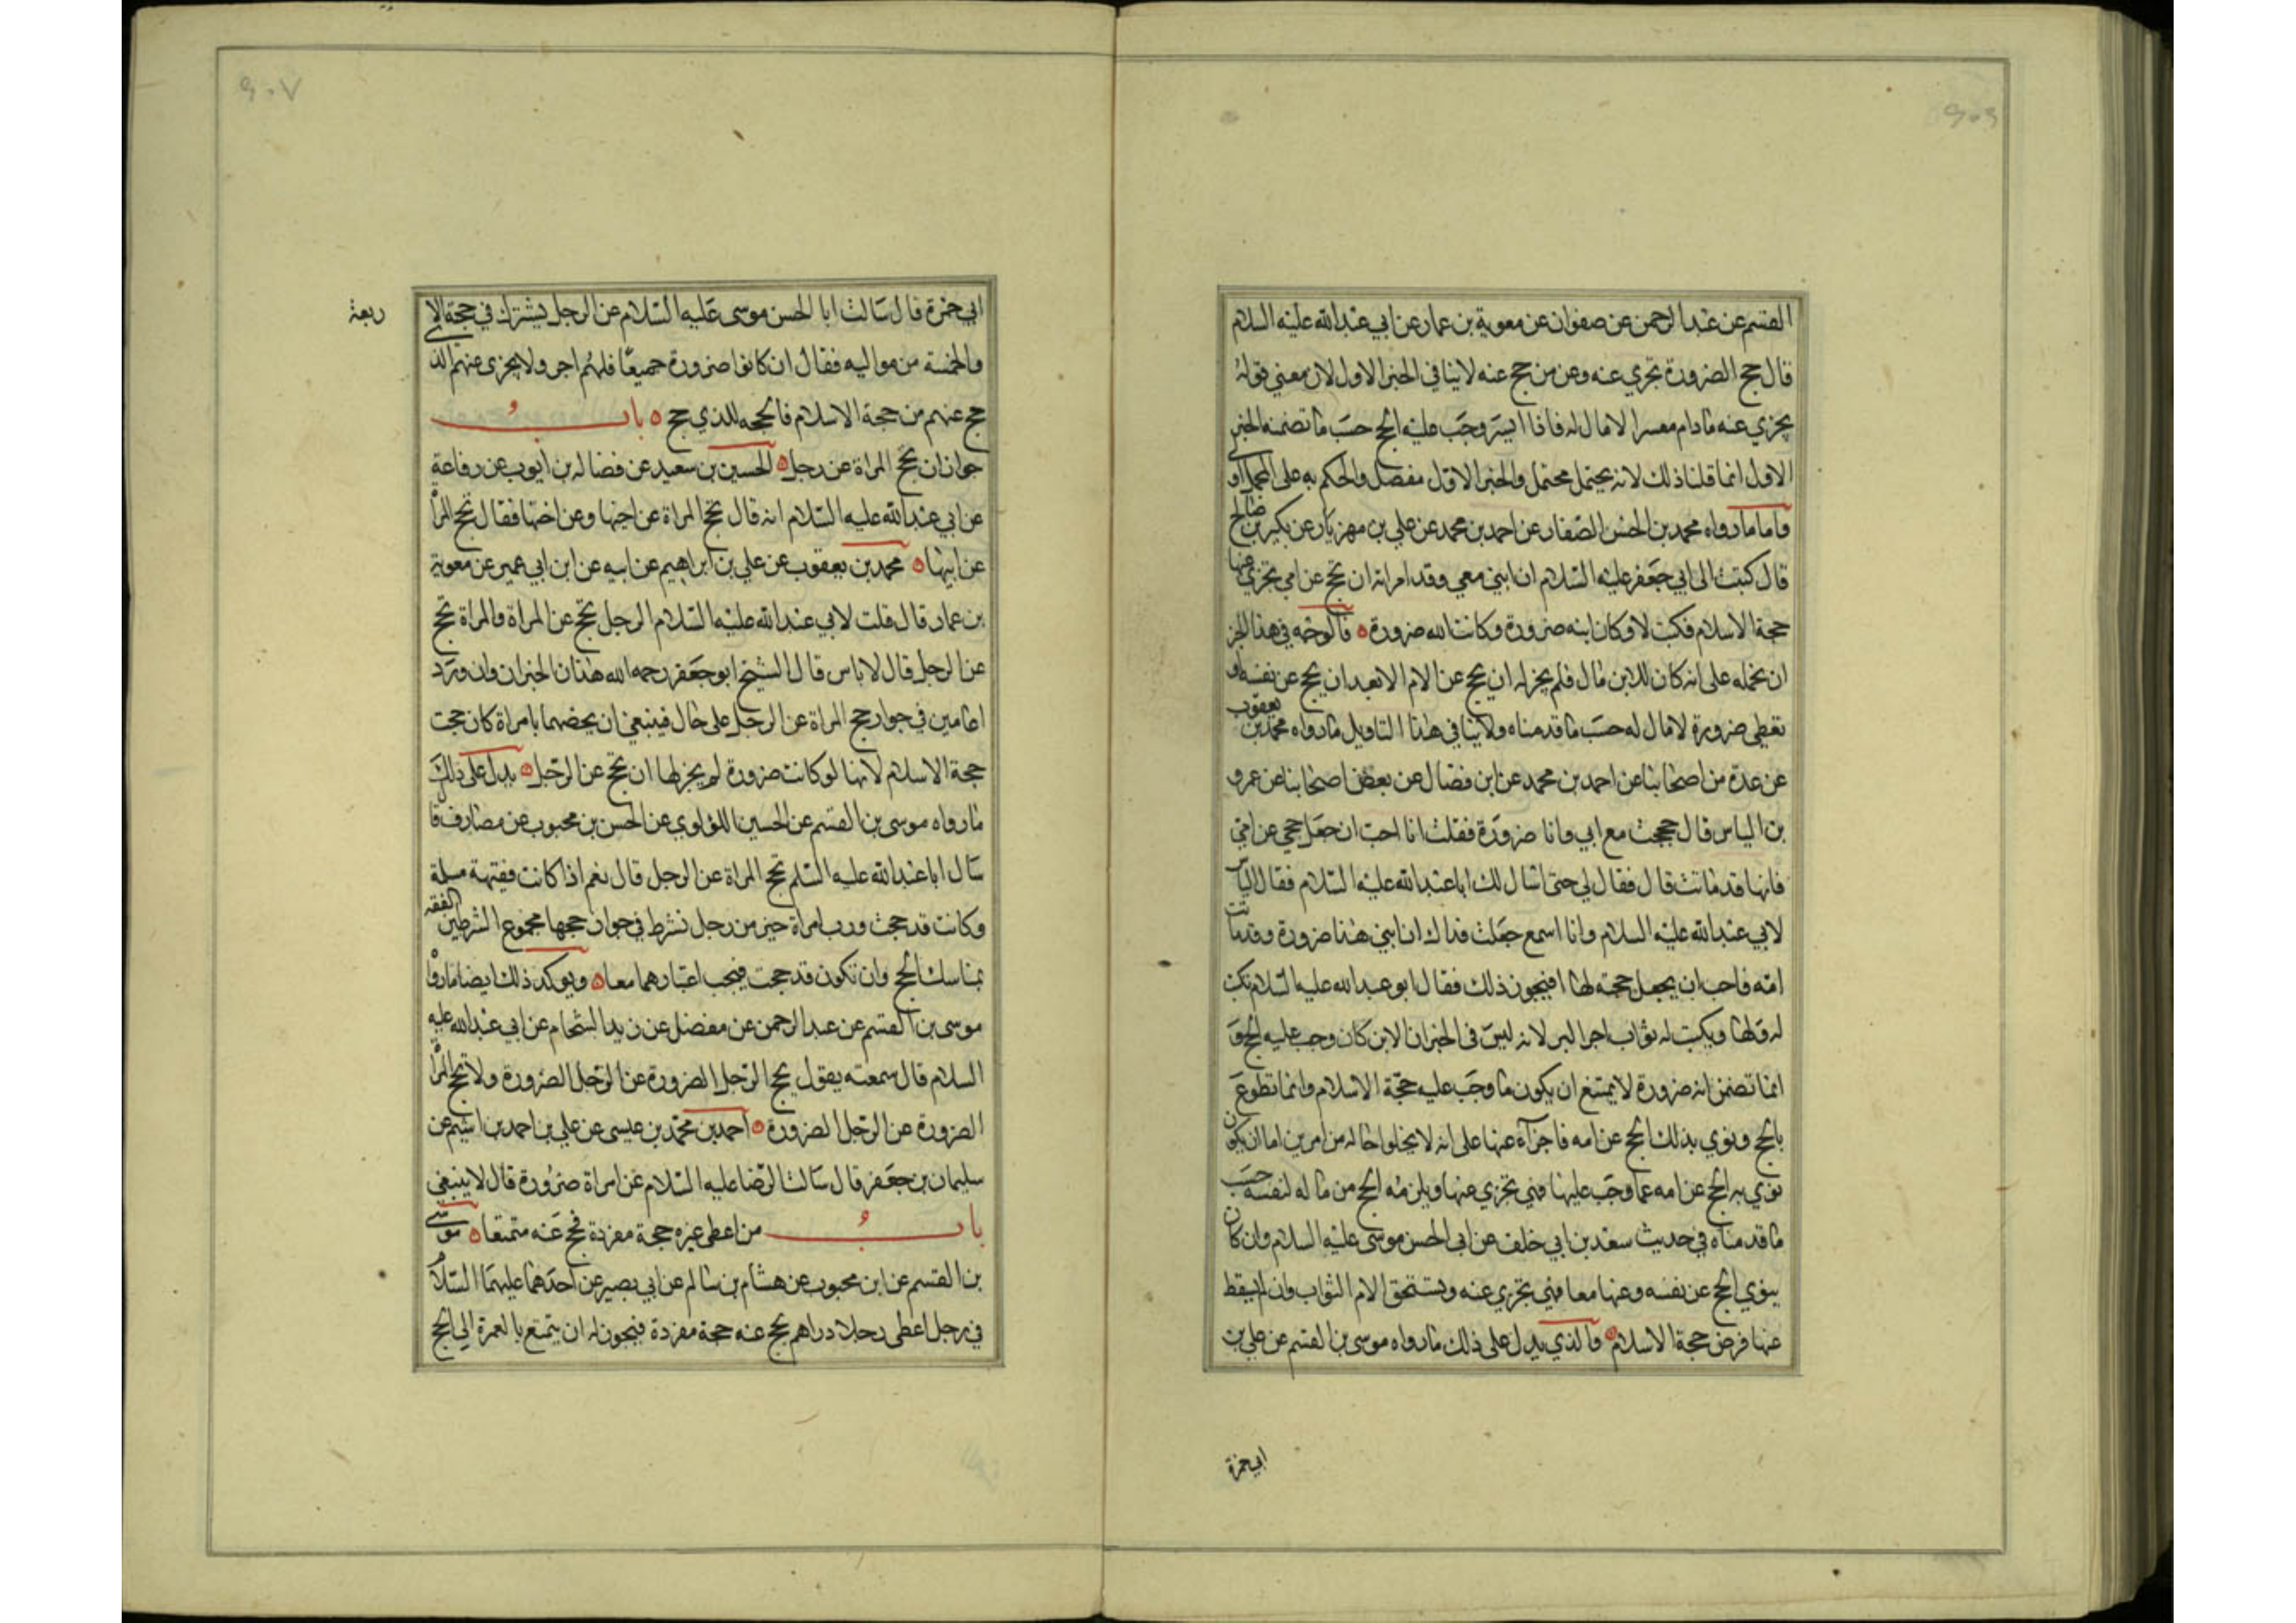 القسم عن عبد الرحمن عن صفوان عن معوية بن عمار عن ابي عبد الله عليه السلام
قال حج الصرورة تجزي عنه وعن من حج عنه لا ينافي الخبر الاول لان معني قوله
يجزي عنه مادام معسرا لا مال له فاذا ايسر وجب عليه الحج حسب ما تضمنه الخبر
الاول انما قلنا ذلك لانه يحتمل محتمل والخبر الاول مفصل والحكم به على المجمل اولى
واما ما رواه محمد بن الحسن الصفار عن احمد بن محمد عن علي بن مهزيار عن بكير بن صالح
قال كتبت الى ابي جعفر عليه السلام ان ابني معي وقد امرته ان يحج عن امي يجزي عنها
حجة الاسلام فكتب لا وكان ابنه صرورة وكانت امه صرورة ٥ فالوجه في هذا الخبر
ان نحمله على انه كان للابن مال فلم يجز له ان يحج عن الام الا بعد ان يحج عن نفسه او
يعطي صرورة لا مال له حسب ما قدمناه ولا ينافي هذا التاويل ما رواه محمد بن يعقوب
عن عدة من اصحابنا عن احمد بن محمد عن ابن فضال عن بعض اصحابنا عن عمرو
بن الياس قال حججت مع ابي وانا صرورة فقلت انا احب ان جعل حجي عن امي
فانها قد ماتت قال فقال لي حتى اسال لك ابا عبد الله عليه السلام فقال الياس
لابي عبد الله عليه السلام وانا اسمع جعلت فداك ان ابني هذا صرورة وقد ماتت
امه فاحب ان يجعل حجته لها افيجوز ذلك فقال ابو عبد الله عليه السلام يكتب
له ولها ويكتب له ثواب اجر البر لانه ليس في الخبر ان الابن كان وجب عليه الحج و
انما تضمن انه صرورة لا يمتنع ان يكون ما وجب عليه حجة الاسلام وانما تطوع
بالحج ونوي بذلك الحج عن امه فاجزأه عنها على انه لا يخلوا حاله من امرين اما ان يكون
نوي به الحج عن امه عما وجب عليها فهي تجزي عنها ويلزمه الحج من ماله لنفسه حسب
ما قدمناه في حديث سعد بن ابي خلف عن ابى الحسن موسى عليه السلام وان كان
ينوي الحج عن نفسه وعنها معا فهي تجزي عنه وتستحق الام الثواب وان لم يسقط
عنها فرض حجة الاسلام ٥ والذي يدل على ذلك ما رواه موسى بن القسم عن علي بن
ابي حمزة
ابي حمزة قال سالت ابا الحسن موسى عليه السلام عن الرجل يشترك في حجة الا
ربعة
والخمسة من مواليه فقال ان كانوا صرورة جميعا فلهم اجر ولا يجزى عنهم الذي
حج عنهم من حجة الاسلام فالحجه للذي حج ٥ باب
جواز ان تحج المراة عن رجل ٥ الحسين بن سعيد عن فضاله بن ايوب عن رفاعة
عن ابي عبد الله عليه السلام انه قال تحج المراة عن اخيها وعن اختها فقال تحج المرأ
عن ابيها ٥ محمد بن يعقوب عن علي بن ابراهيم عن ابيه عن ابن ابي عمير عن معوية
بن عمار قال قلت لابي عبد الله عليه السلام الرجل يحج عن المراة والمراة تحج
عن الرجل قال لا باس قال الشيخ ابو جعفر رحمه الله هذان الخبران وان ورد
اعامين في جواز حج المراة عن الرجل على حال فينبغي ان يخصهما بامراة كان حجت
حجة الاسلام لانها لو كانت صرورة لم يجز لها ان تحج عن الرجل ٥ يدل على ذلك
ما رواه موسى بن القسم عن الحسين اللؤلوي عن الحسن بن محبوب عن مصادف قال
سال ابا عبد الله عليه السلم تحج المراة عن الرجل قال نعم اذا كانت فقيهة مسلمة
وكانت قد حجت ورب امراة خير من رجل نشرط في جواز حجها مجموع الشرطين الفقه
بمناسك الحج وان تكون قد حجت فيجب اعتبارهما معا ٥ ويوكد ذلك ايضا ما رواه
موسى بن القسم عن عبد الرحمن عن مفضل عن زيد الشحام عن ابي عبد الله عليه
السلام قال سمعته يقول يحج الرجل الصرورة عن الرجل الصرورة ولا تحج المرأ
الصرورة عن الرجل الصرورة ٥ احمد بن محمد بن عيسى عن علي بن احمد بن اشيم عن
سليمان بن جعفر قال سالت الرضا عليه السلام عن امراة صرورة قال لا ينبغي
باب من اعطى غيره حجة مفردة فحج عنه متمتعا ٥ موسى
بن القسم عن ابن محبوب عن هشام بن سالم عن ابي بصير عن احدهما عليهما السلام
في رجل اعطى رجلا دراهم يحج عنه حجة مفردة فيجوز له ان يتمتع بالعمرة الى الحج